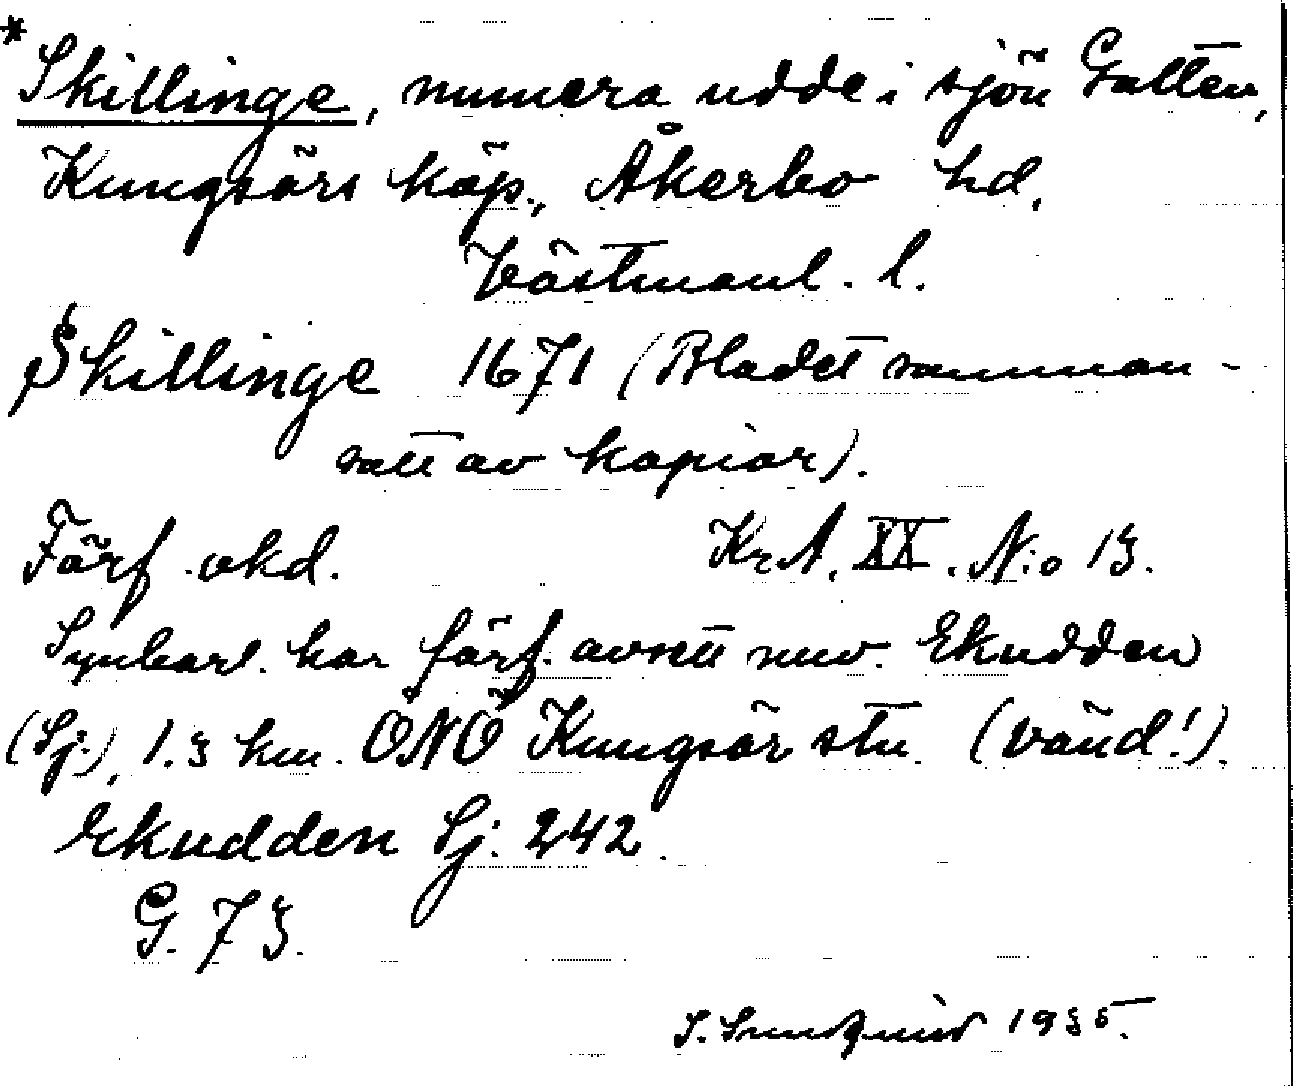 *Skillinge, numera udde i sjön Galten,
Kungsörs köp., Åkerbo hd,
Västmanl. l.
Skillinge 1671 (Bladet samman-
satt av kopior).
Förf. okd. KrA. XX. N:o 13.
Synbarl. har förf. avsett nuv. Ekudden
(Sj.), 1.3 km. ÖNÖ Kungsör stn. (vänd!).
Ekudden Sj. 242.
G. 73.
S. Sundquist 1935.